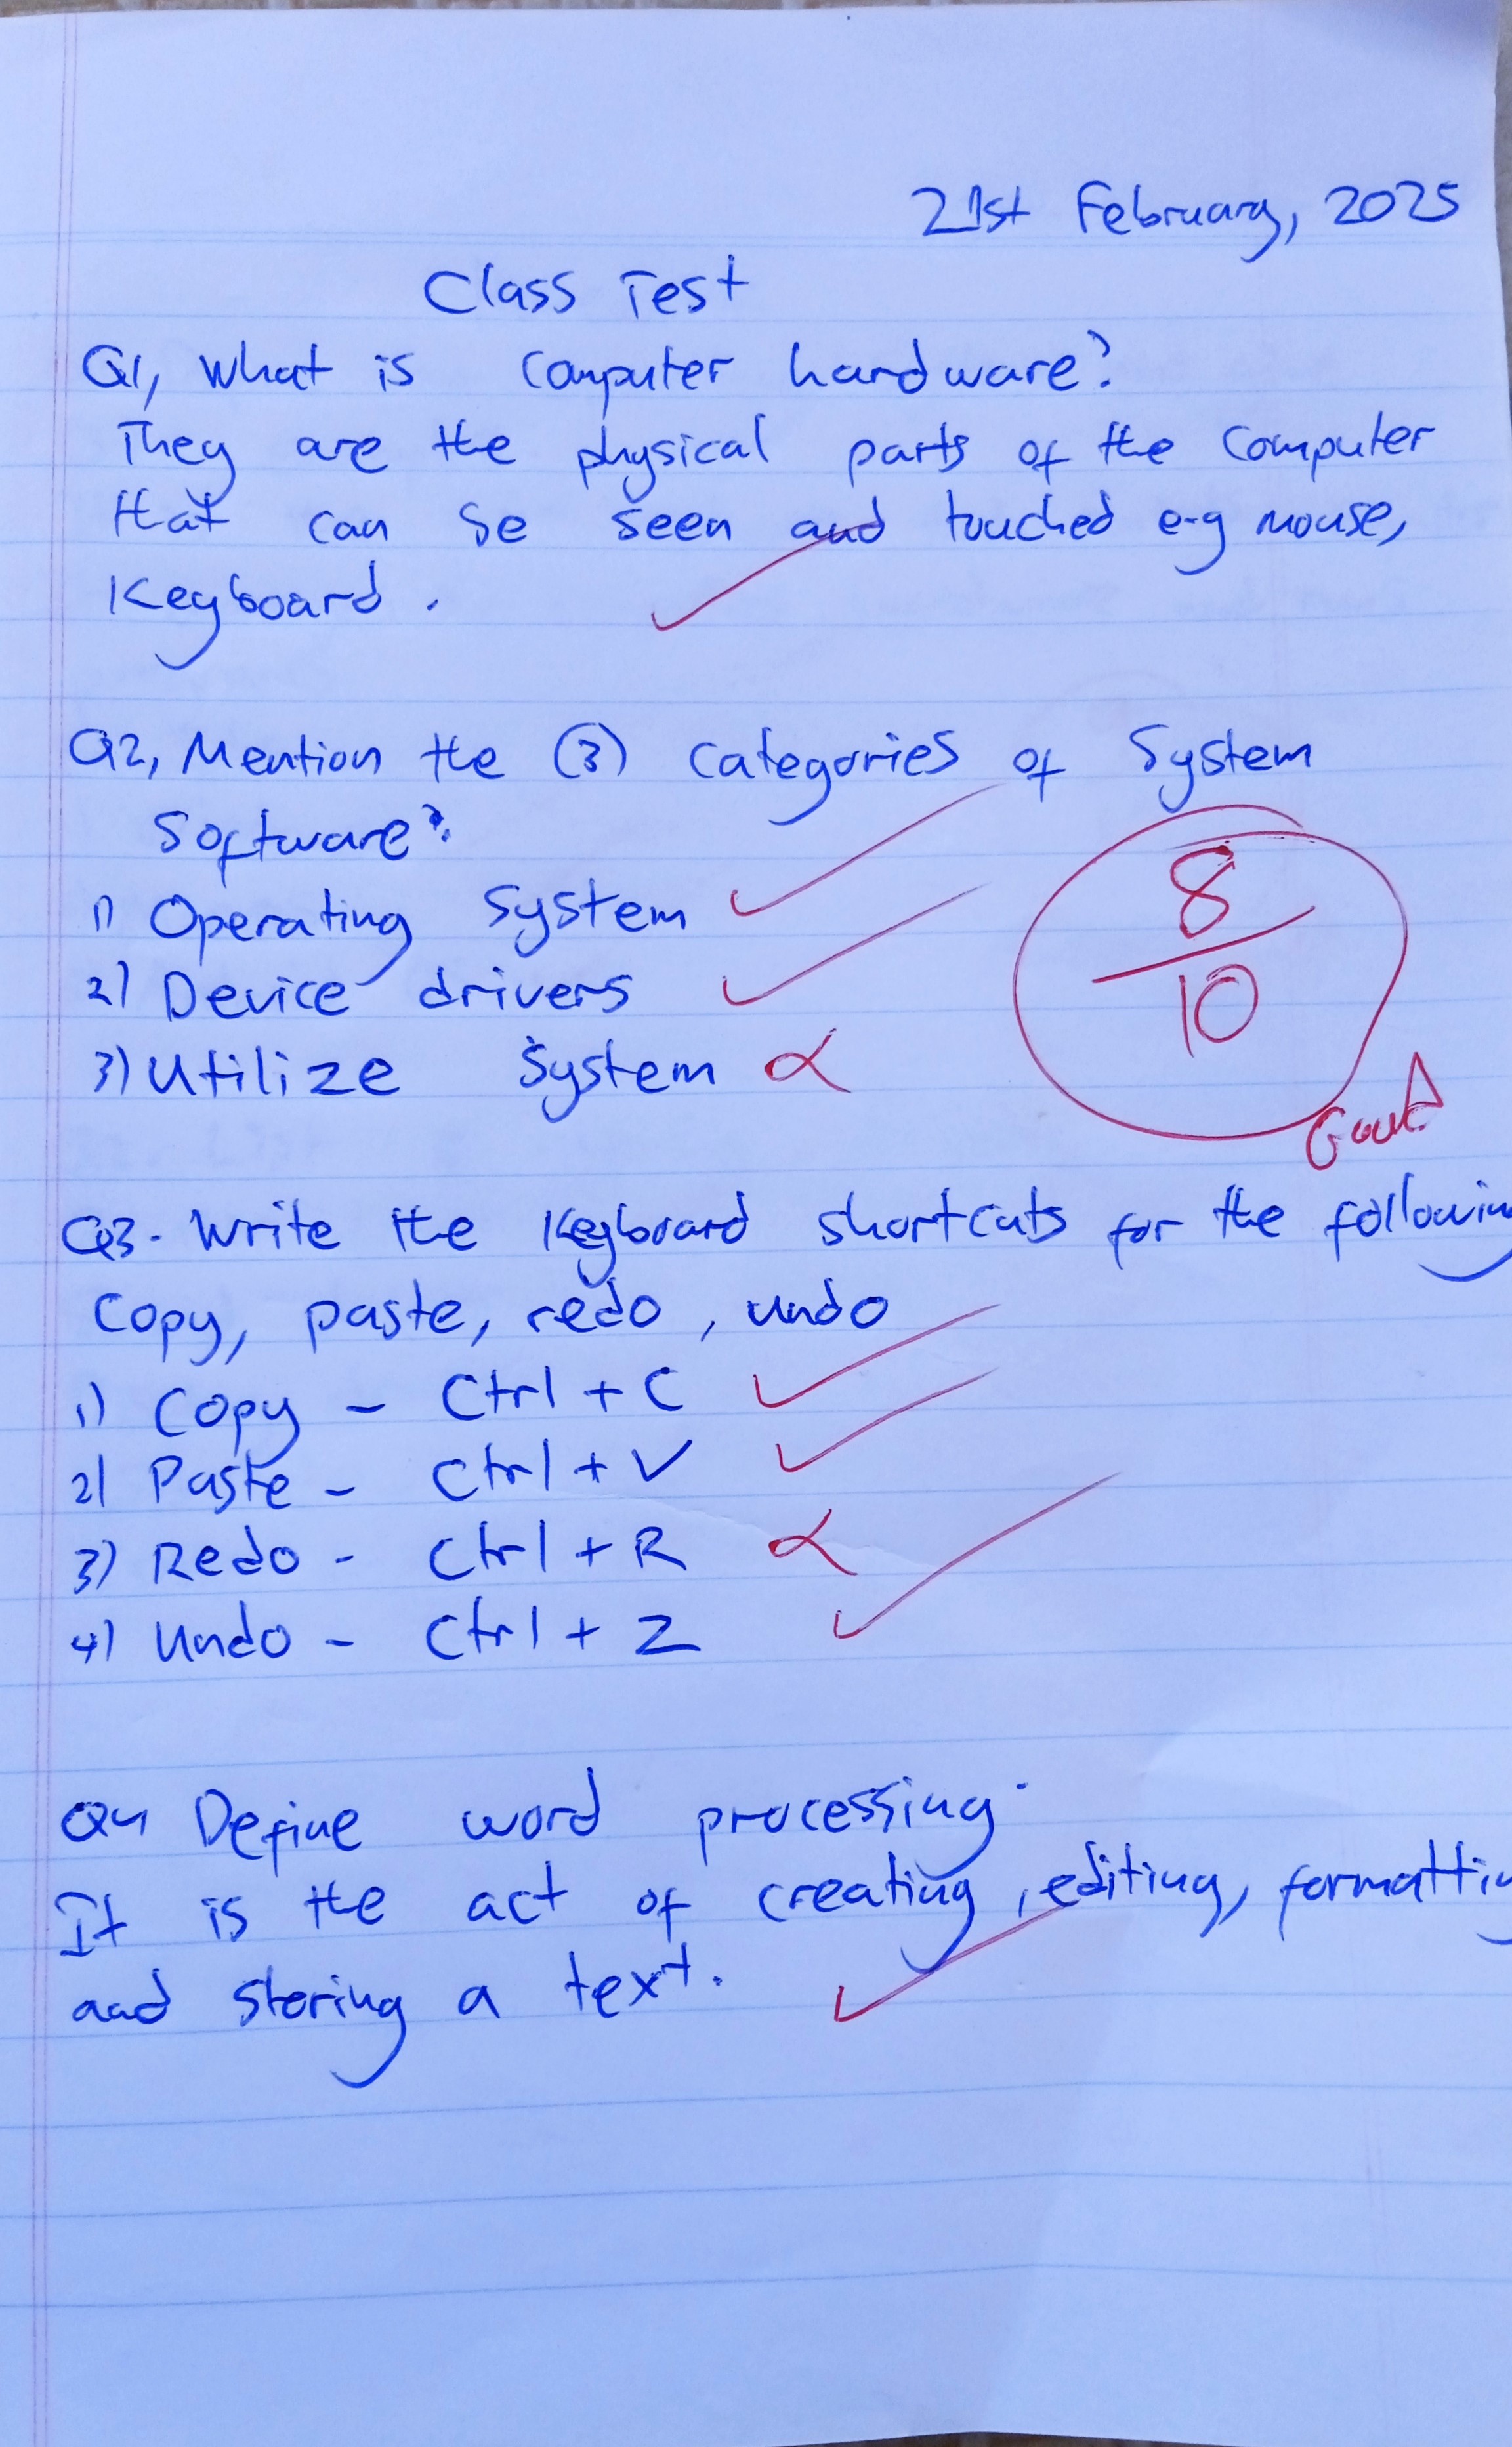 21st February, 2025
Class Test
Q1, What is computer hardware?
They are the physical parts of the computer
that can be seen and touched e-g mouse,
Keyboard.
Q2, Mention the (3) categories of System
Software?
1) Operating System
2) Device drivers
3) Utilize System
8
10
Good
Q3. Write the Keyboard shortcuts for the following
Copy, paste, redo, undo
1) Copy - Ctrl + C
2) Paste - Ctrl + V
3) Redo - Ctrl + R
4) Undo - Ctrl + Z
Q4 Define word processing.
It is the act of creating, editing, formatting
and storing a text.